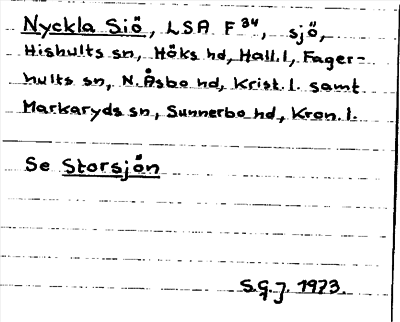 Nyckla Siö, LSA F 34, sjö,
Hishults sn, Höks hd, Hall.l, Fager-
hults sn, N. Åsbo hd, Krist.l. samt
Markaryds sn, Sunnerbo hd, Kron.l.
Se Storsjön
S.G.J. 1973.